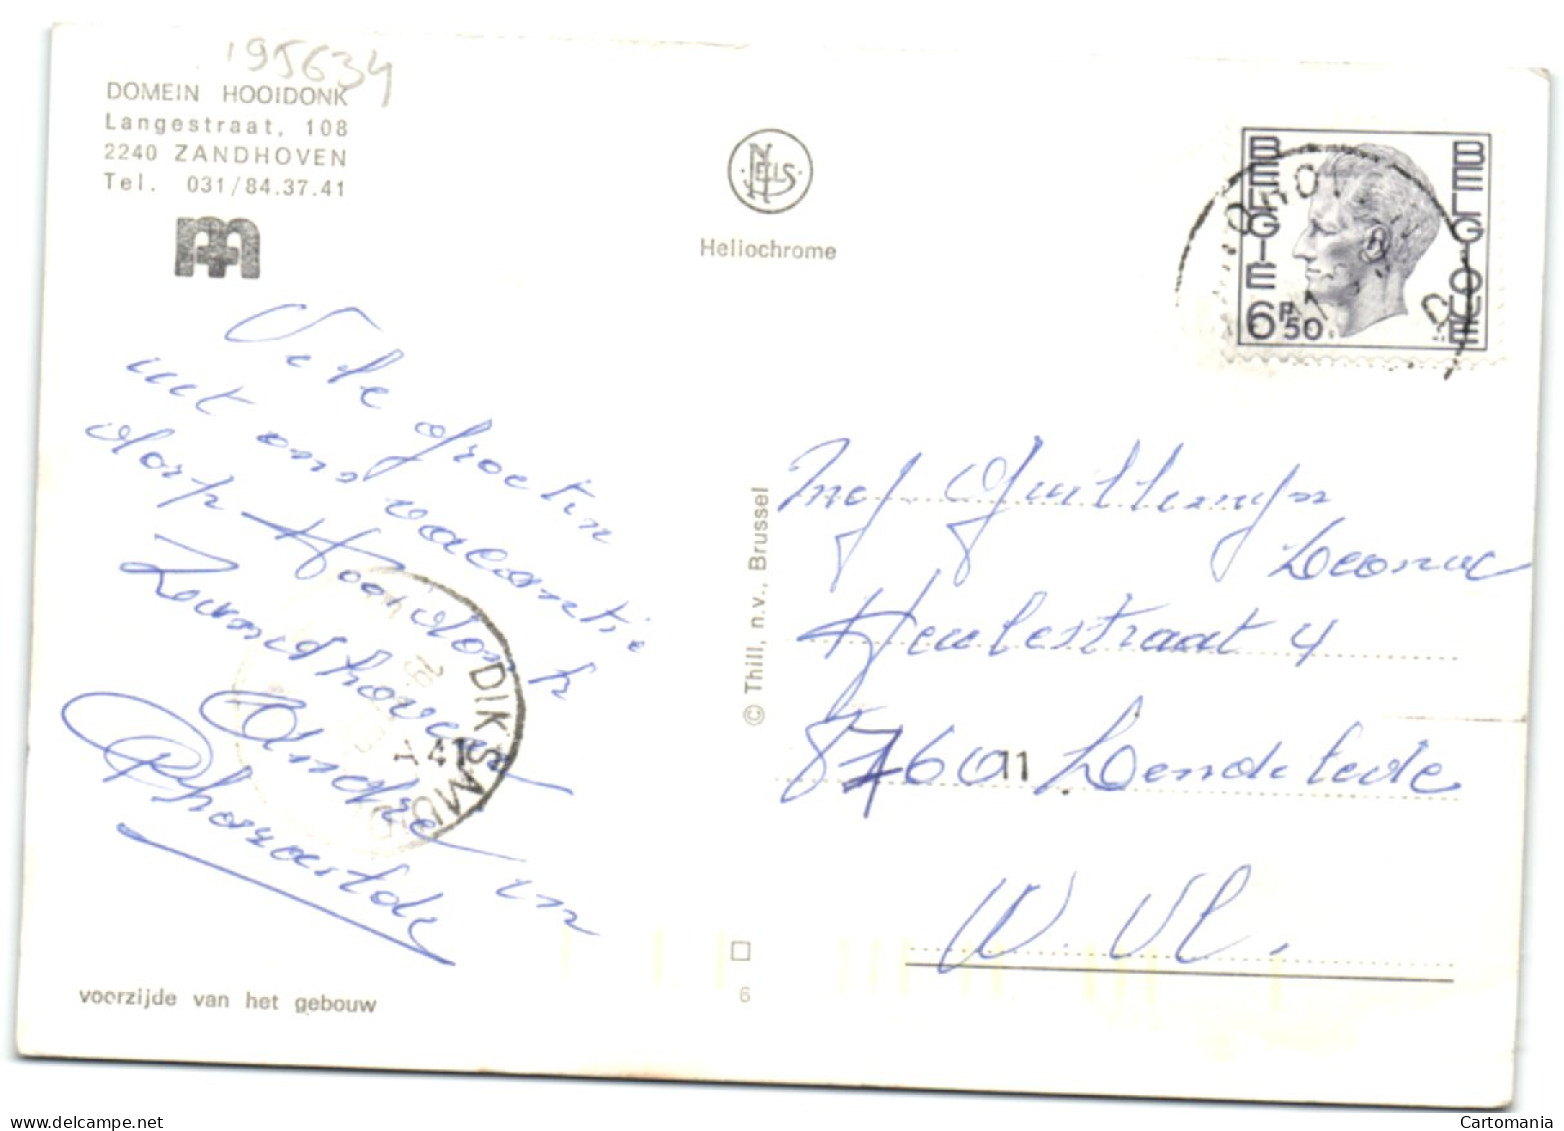 195634
DOMEIN HOOIDONK
Langestraat, 108
2240 ZANDHOVEN
Tel. 031/84.37.41
NELS
Heliochrome
BELGIE
BELGIQUE
6F50
Vele groeten
uit ons vacantie
dorp Hooidonk
Zandhoven
André en
DIKSMU
A 41
© Thill, n.v., Brussel
Heulestraat 4
8760 11 Lendelede
W. Vl.
voorzijde van het gebouw
6
delcampe.net
Cartomania